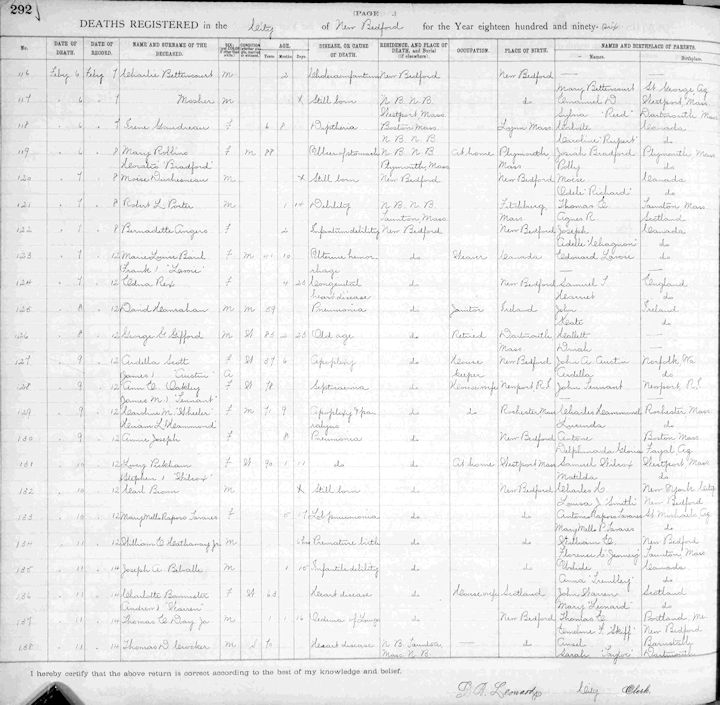 292
(PAGE 3
DEATHS REGISTERED in the City of New Bedford for the Year eighteen hundred and ninety-six
No. DATE OF DEATH. DATE OF RECORD. NAME AND SURNAME OF THE DECEASED. SEX CONDITION AGE. Years Months Days DISEASE, OR CAUSE OF DEATH. RESIDENCE, AND PLACE OF DEATH, and Burial (if elsewhere). OCCUPATION. PLACE OF BIRTH. NAMES AND BIRTHPLACE OF PARENTS. Names. Birthplace.
116 Feby 6 Feby 7 Charlie Bettencourt M 2 Cholera infantum New Bedford New Bedford —
Mary Bettencourt St George Az
117 6 7 Mosher M X Still born N B. N B. do Emanuel D Westport Mass
Westport Mass Sylvia "Reed" Dartmouth Mass
118 6 7 Irene Gaudreau F 6 8 Diptheria Boston Mass Lynn Mass Canada
N B. N B. Caroline "Rupert" do
119 6 8 Mary Rollins F M 88 Ulcer of stomach N B. N B At home Plymouth Josiah Bradford Plymouth Mass
"Bradford" Plymouth Mass Mass Polly do
120 7 8 Moise Duchesneau M X Still born New Bedford New Bedford Moise Canada
"Richard" do
121 7 8 Robert L Porter M 1 14 Debility N B. N B. Fitchburg Thomas C Taunton Mass
Taunton Mass Mass Agnes R Scotland
122 7 8 Bernadette Angers F 2 Infantum debility New Bedford New Bedford Joseph Canada
Adelle "Chagnon" do
123 7 12 Marie Louise F M 41 10 Uterine hemor do Weaver Canada Edouard Lavoie do
Frank) "Lavoie" rhage
124 7 12 Edna Rex F 4 23 Congenital do New Bedford Samuel T England
heart disease Harriet do
125 8 12 David Hanrahan M M 59 Pneumonia do Janitor Ireland John Ireland
Kate do
126 8 12 George G Gifford M W 83 2 23 Old age do Retired Dartmouth do
Mass Dinah do
127 9 12 Ardella Scott F W 37 6 Apoplexy do House New Bedford John A Austin Norfolk Va
James) "Austin" A keeper Ardella do
128 9 12 Ann E (Oakley F W 78 Septicaemia do Housewife Newport R.I. John Tennant Newport R.I.
James M) "Tennant" —
129 9 12 Caroline M "Wheeler" F M 71 9 Apoplexy & par do do Rochester Mass Charles Hammond Rochester Mass
Hiram L Hammond alysis Lucinda do
130 9 12 Annie Joseph F 8 Pneumonia do New Bedford Antone Boston Mass
Delphinada Fayal Az
131 10 12 Lucy Peckham F W 90 1 11 do do At home Westport Mass Samuel Wilcox Westport Mass
Stephen) "Wilcox" Matilda do
132 10 12 Carl Brown M X Still born do New Bedford Charles C New York City
Louisa J "Smith" New Bedford
133 10 12 Mary Mello Raposo Tavares F 5 17 Lob pneumonia do do Antonio Raposo Tavares St Michaels Az
Mary Mello P Tavares do
134 11 14 William E Hathaway Jr M 6 hrs Premature birth do do William E New Bedford
Florence "Jenney" Taunton Mass
135 11 14 Joseph A M 1 10 Infantile debility do do Canada
Anna "Trembley" do
136 11 14 Charlotte Bannister F W 63 Heart disease do Housewife Scotland John Warren Scotland
Andrew) "Warren" Mary "Leonard" do
137 11 14 Thomas C Day Jr M 1 1 16 Oedema of Lungs do New Bedford Thomas C Portland Me
Emeline F "Skiff" New Bedford
138 11 14 Thomas D Crocker M S 70 Heart disease N B. Taunton — do Ansel Barnstable
Mass N B. Sarah "Taylor" Dartmouth
I hereby certify that the above return is correct according to the best of my knowledge and belief.
D. A. Leonard City Clerk.